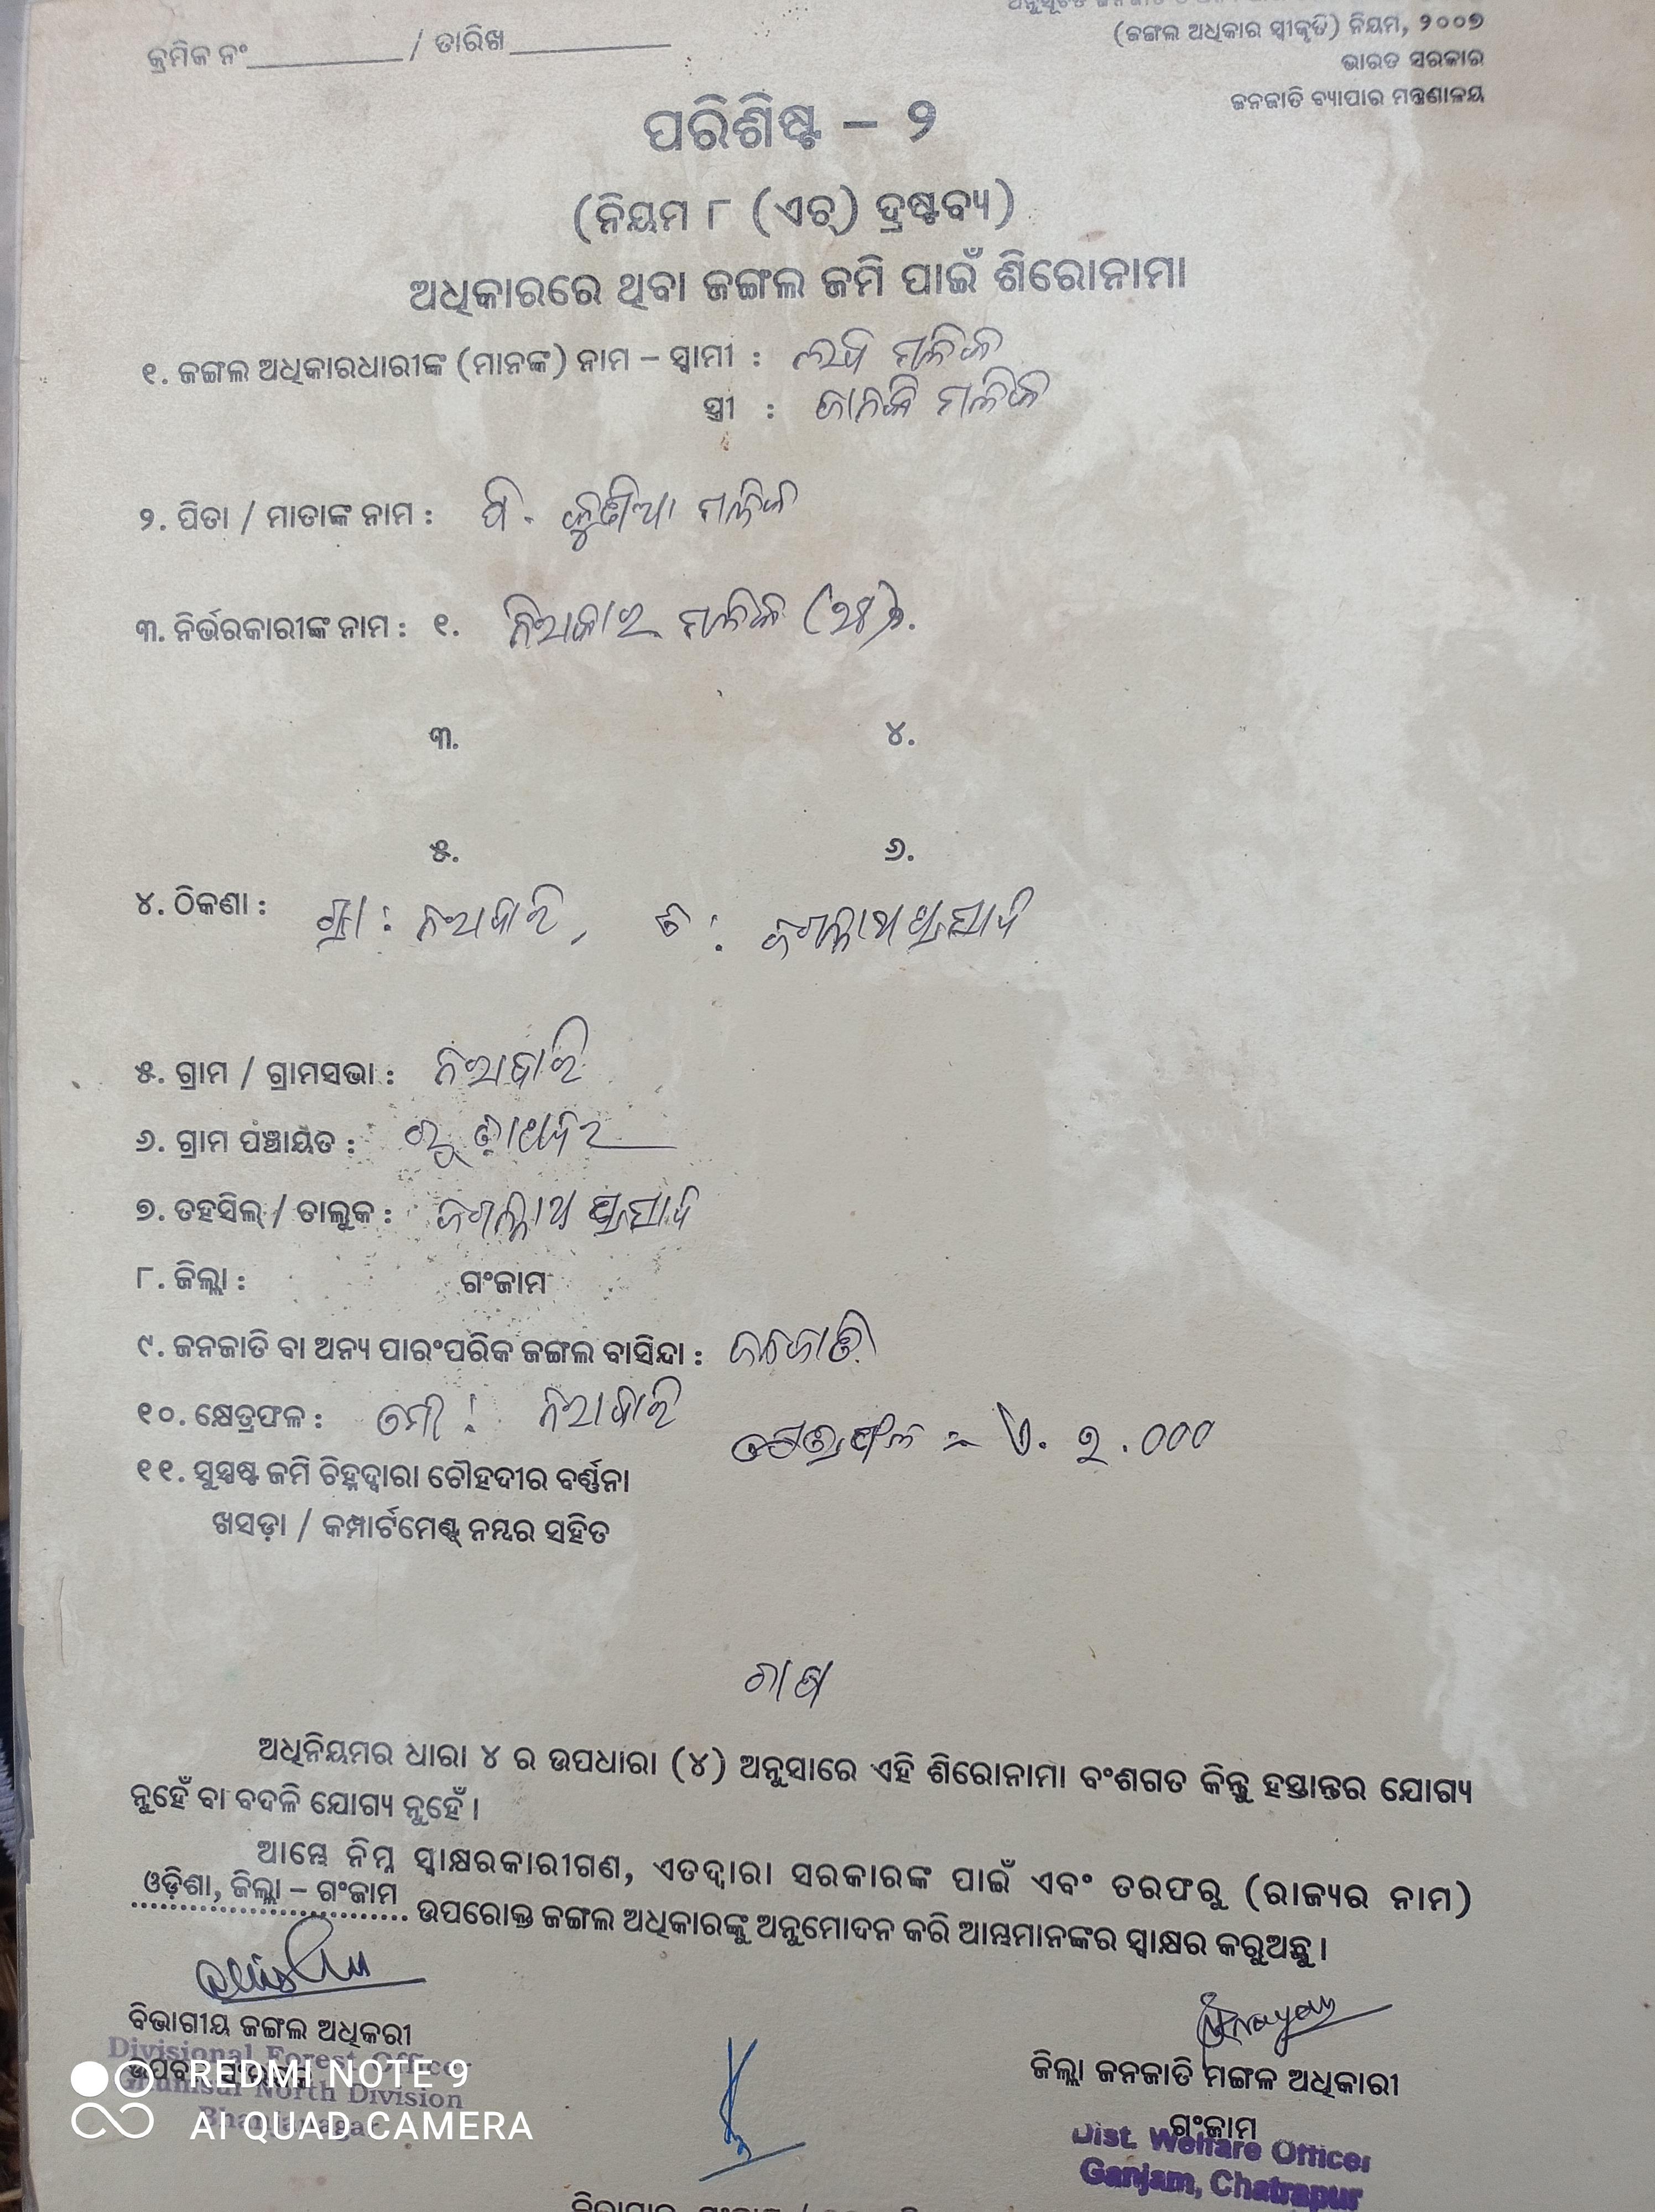 କ୍ରମିକ ନଂ / ତାରିଖ
(ଜଙ୍ଗଲ ଅଧିକାର ସ୍ୱୀକୃତି) ନିୟମ, ୨୦୦୭
ଭାରତ ସରକାର
ଜନଜାତି ବ୍ୟାପାର ମନ୍ତ୍ରଣାଳୟ
ପରିଶିଷ୍ଟ – ୨
(ନିୟମ ୮ (ଏଚ୍) ଦ୍ରଷ୍ଟବ୍ୟ)
ଅଧିକାରରେ ଥିବା ଜଙ୍ଗଲ ଜମି ପାଇଁ ଶିରୋନାମା
୧. ଜଙ୍ଗଲ ଅଧିକାରଧାରୀଙ୍କ (ମାନଙ୍କ) ନାମ – ସ୍ୱାମୀ : ମଳିକ
ସ୍ତ୍ରୀ : ଜାନକି ମଳିକ
୨. ପିତା / ମାତାଙ୍କ ନାମ : ପି. ମଳିକ
୩. ନିର୍ଭରକାରୀଙ୍କ ନାମ : ୧. ନିରାକାର ମଳିକ
୩. ୪.
୫. ୬.
୪. ଠିକଣା : ଗ୍ରା : ଜଗନ୍ନାଥପ୍ରସାଦ
୫. ଗ୍ରାମ / ଗ୍ରାମସଭା :
୬. ଗ୍ରାମ ପଞ୍ଚାୟତ :
୭. ତହସିଲ୍ / ତାଲୁକ : ଜଗନ୍ନାଥ ପ୍ରସାଦ
୮. ଜିଲ୍ଲା : ଗଂଜାମ
୯. ଜନଜାତି ବା ଅନ୍ୟ ପାରଂପରିକ ଜଙ୍ଗଲ ବାସିନ୍ଦା : ଜନଜାତି
୧୦. କ୍ଷେତ୍ରଫଳ :
କ୍ଷେତ୍ରଫଳ = ଏ. ୨.୦୦୦
୧୧. ସୁସ୍ପଷ୍ଟ ଜମି ଚିହ୍ନଦ୍ୱାରା ଚୌହଦୀର ବର୍ଣ୍ଣନା
ଖସଡ଼ା / କମ୍ପାର୍ଟମେଣ୍ଟ୍ ନମ୍ବର ସହିତ
ଅଧିନିୟମର ଧାରା ୪ ର ଉପଧାରା (୪) ଅନୁସାରେ ଏହି ଶିରୋନାମା ବଂଶଗତ କିନ୍ତୁ ହସ୍ତାନ୍ତର ଯୋଗ୍ୟ
ନୁହେଁ ବା ବଦଳି ଯୋଗ୍ୟ ନୁହେଁ ।
ଆମ୍ଭେ ନିମ୍ନ ସ୍ୱାକ୍ଷରକାରୀଗଣ, ଏତଦ୍ୱାରା ସରକାରଙ୍କ ପାଇଁ ଏବଂ ତରଫରୁ (ରାଜ୍ୟର ନାମ)
ଓଡ଼ିଶା, ଜିଲ୍ଲା – ଗଂଜାମ ଉପରୋକ୍ତ ଜଙ୍ଗଲ ଅଧିକାରଙ୍କୁ ଅନୁମୋଦନ କରି ଆମ୍ଭମାନଙ୍କର ସ୍ୱାକ୍ଷର କରୁଅଛୁ ।
ବିଭାଗୀୟ ଜଙ୍ଗଲ ଅଧିକରୀ
Divisional Forest Officer
Ghumsur North Division
Bhanjanagar
ଜିଲ୍ଲା ଜନଜାତି ମଙ୍ଗଳ ଅଧିକାରୀ
ଗଂଜାମ
Dist. Welfare Officer
Ganjam, Chatrapur
REDMI NOTE 9
AI QUAD CAMERA